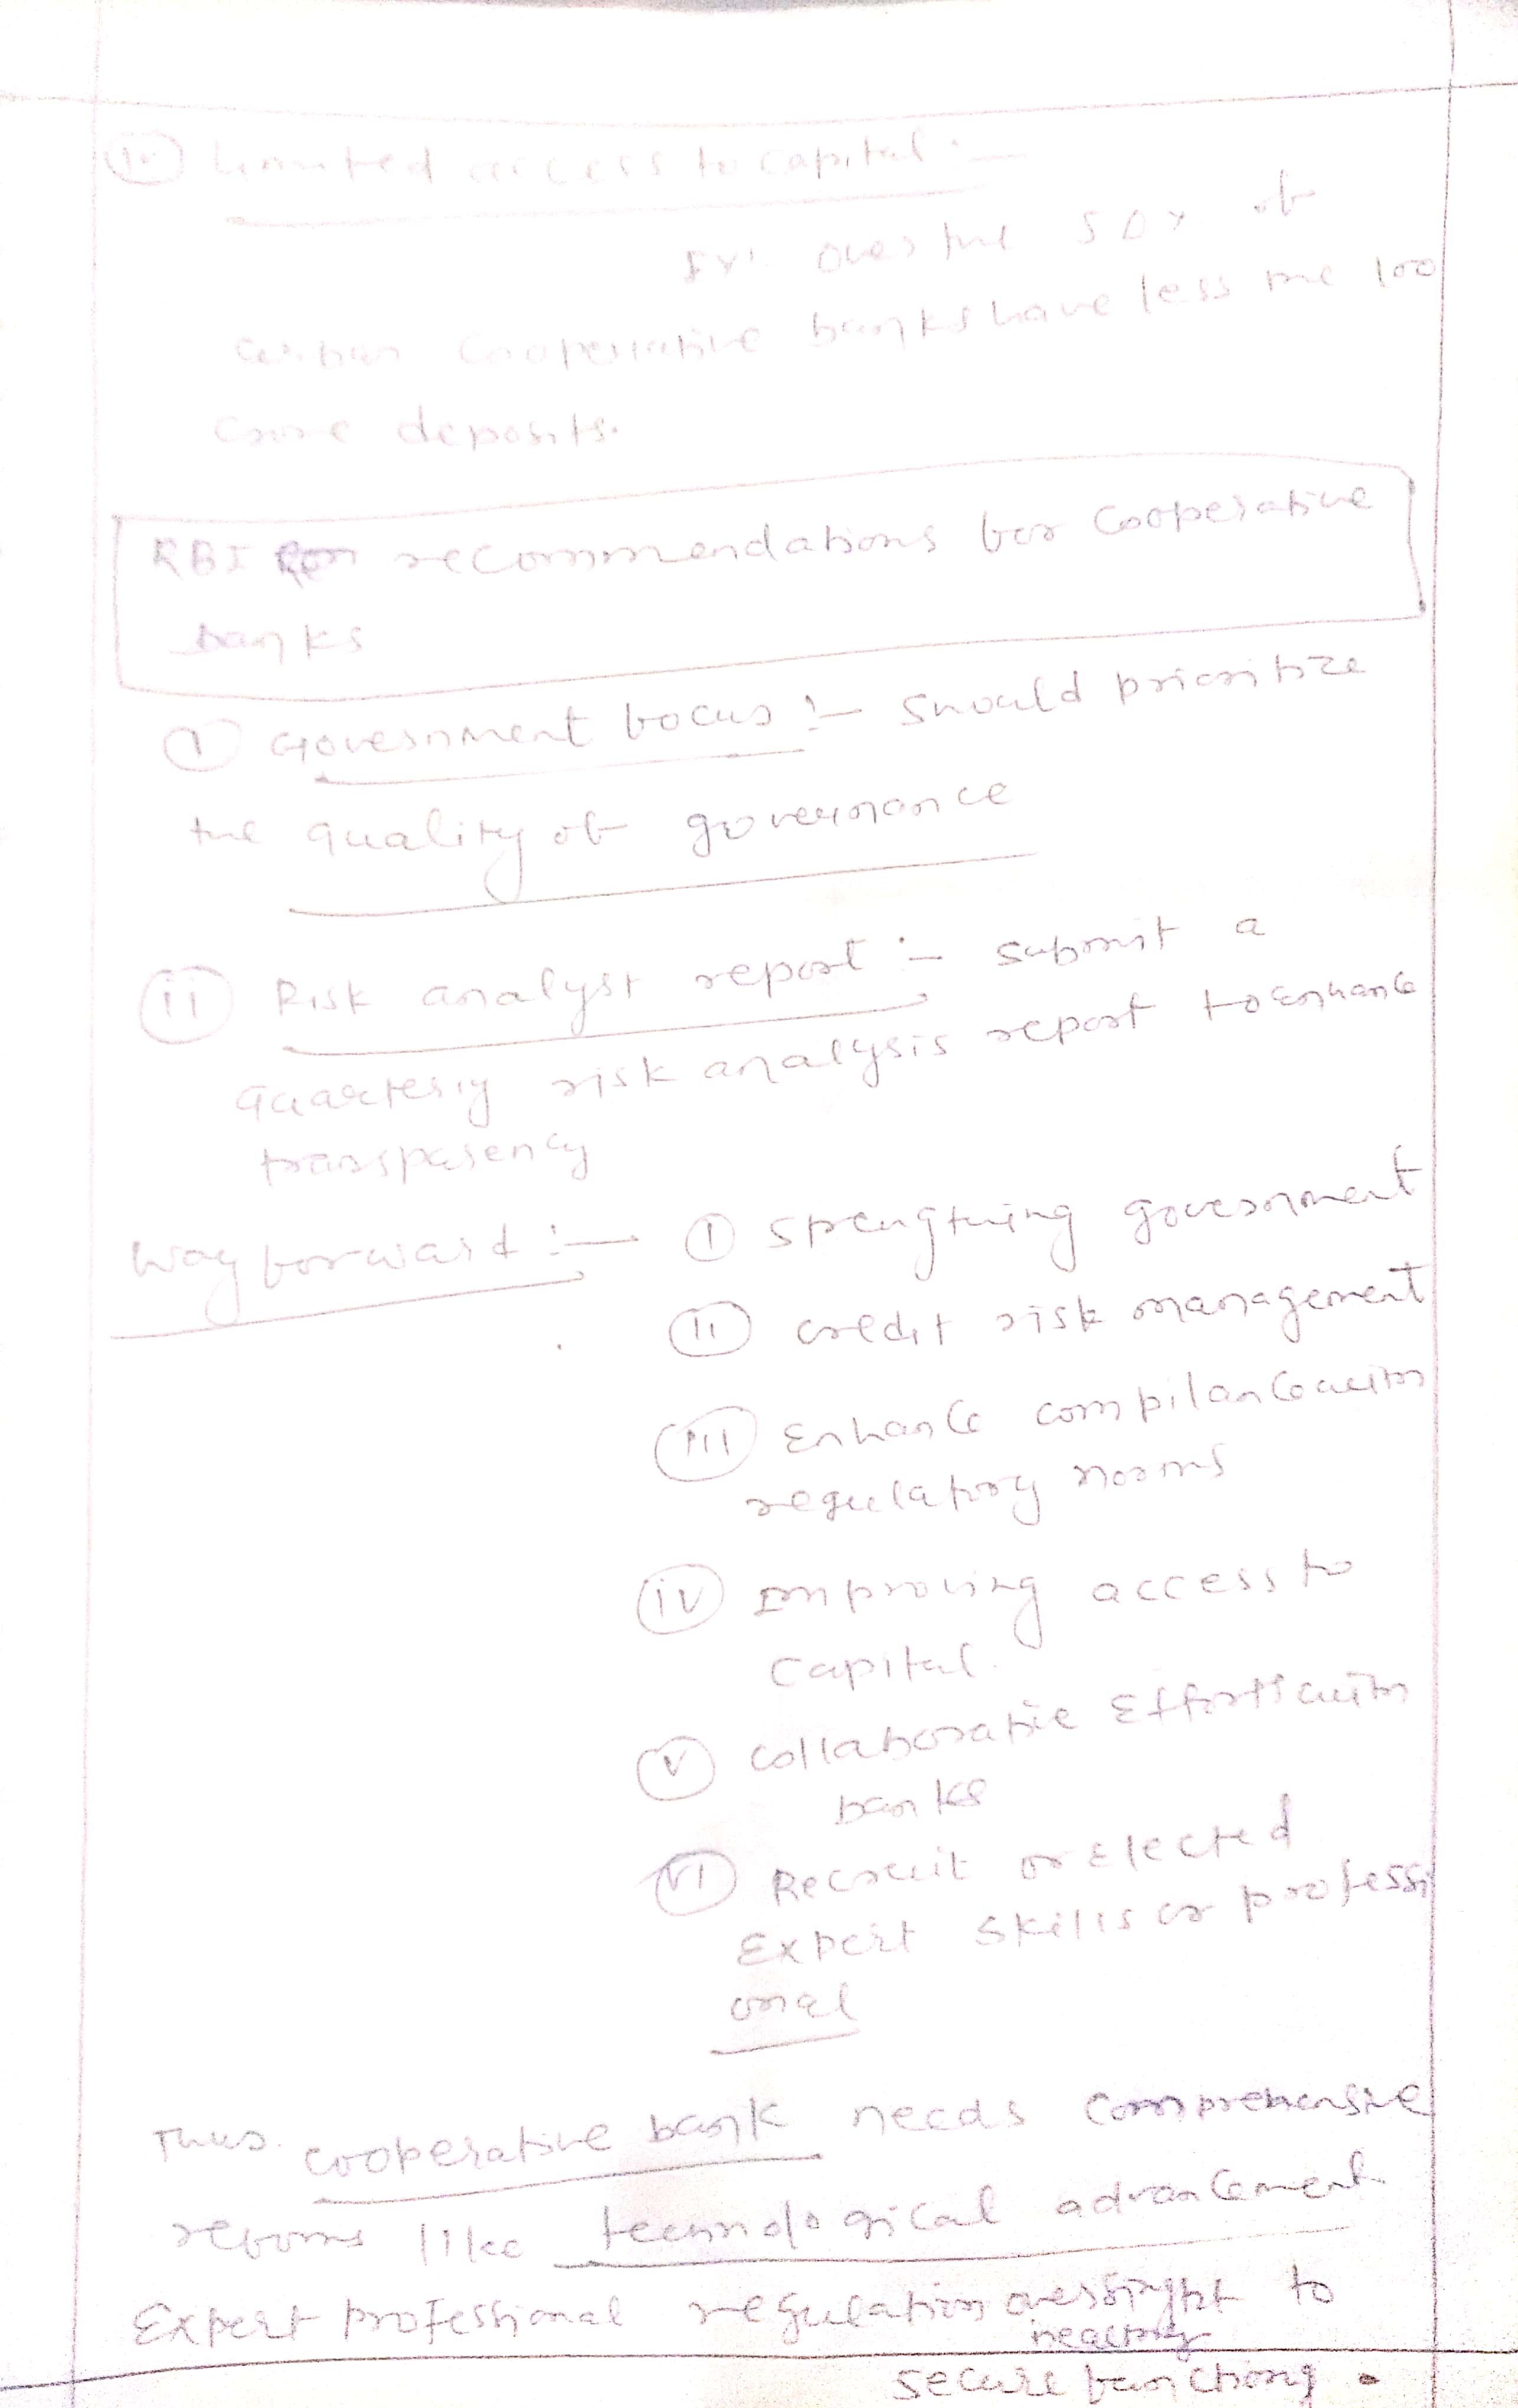 (iv) Limited access to capital :-
Ex! Over the 50% of
urban cooperative banks have less the 100
crore deposits.
RBI recommendations for cooperative
banks
(I) Government focus :- should prioritize
the quality of governance
(ii) Risk analyst report :- submit a
quarterly risk analysis report to enhance
transparency
Way forward :- (I) strengthing government
(ii) credit risk management
(iii) Enhance compilance with
regulatory norms
(iv) Improving access to
capital.
(v) collaboratie Efforts with
banks
(vi) Recruit or Elected
Expert skills or professi
onal
Thus cooperative bank needs comprehensive
reforms like technological advancement
Expert professional regulation oversight to
secure functiong .